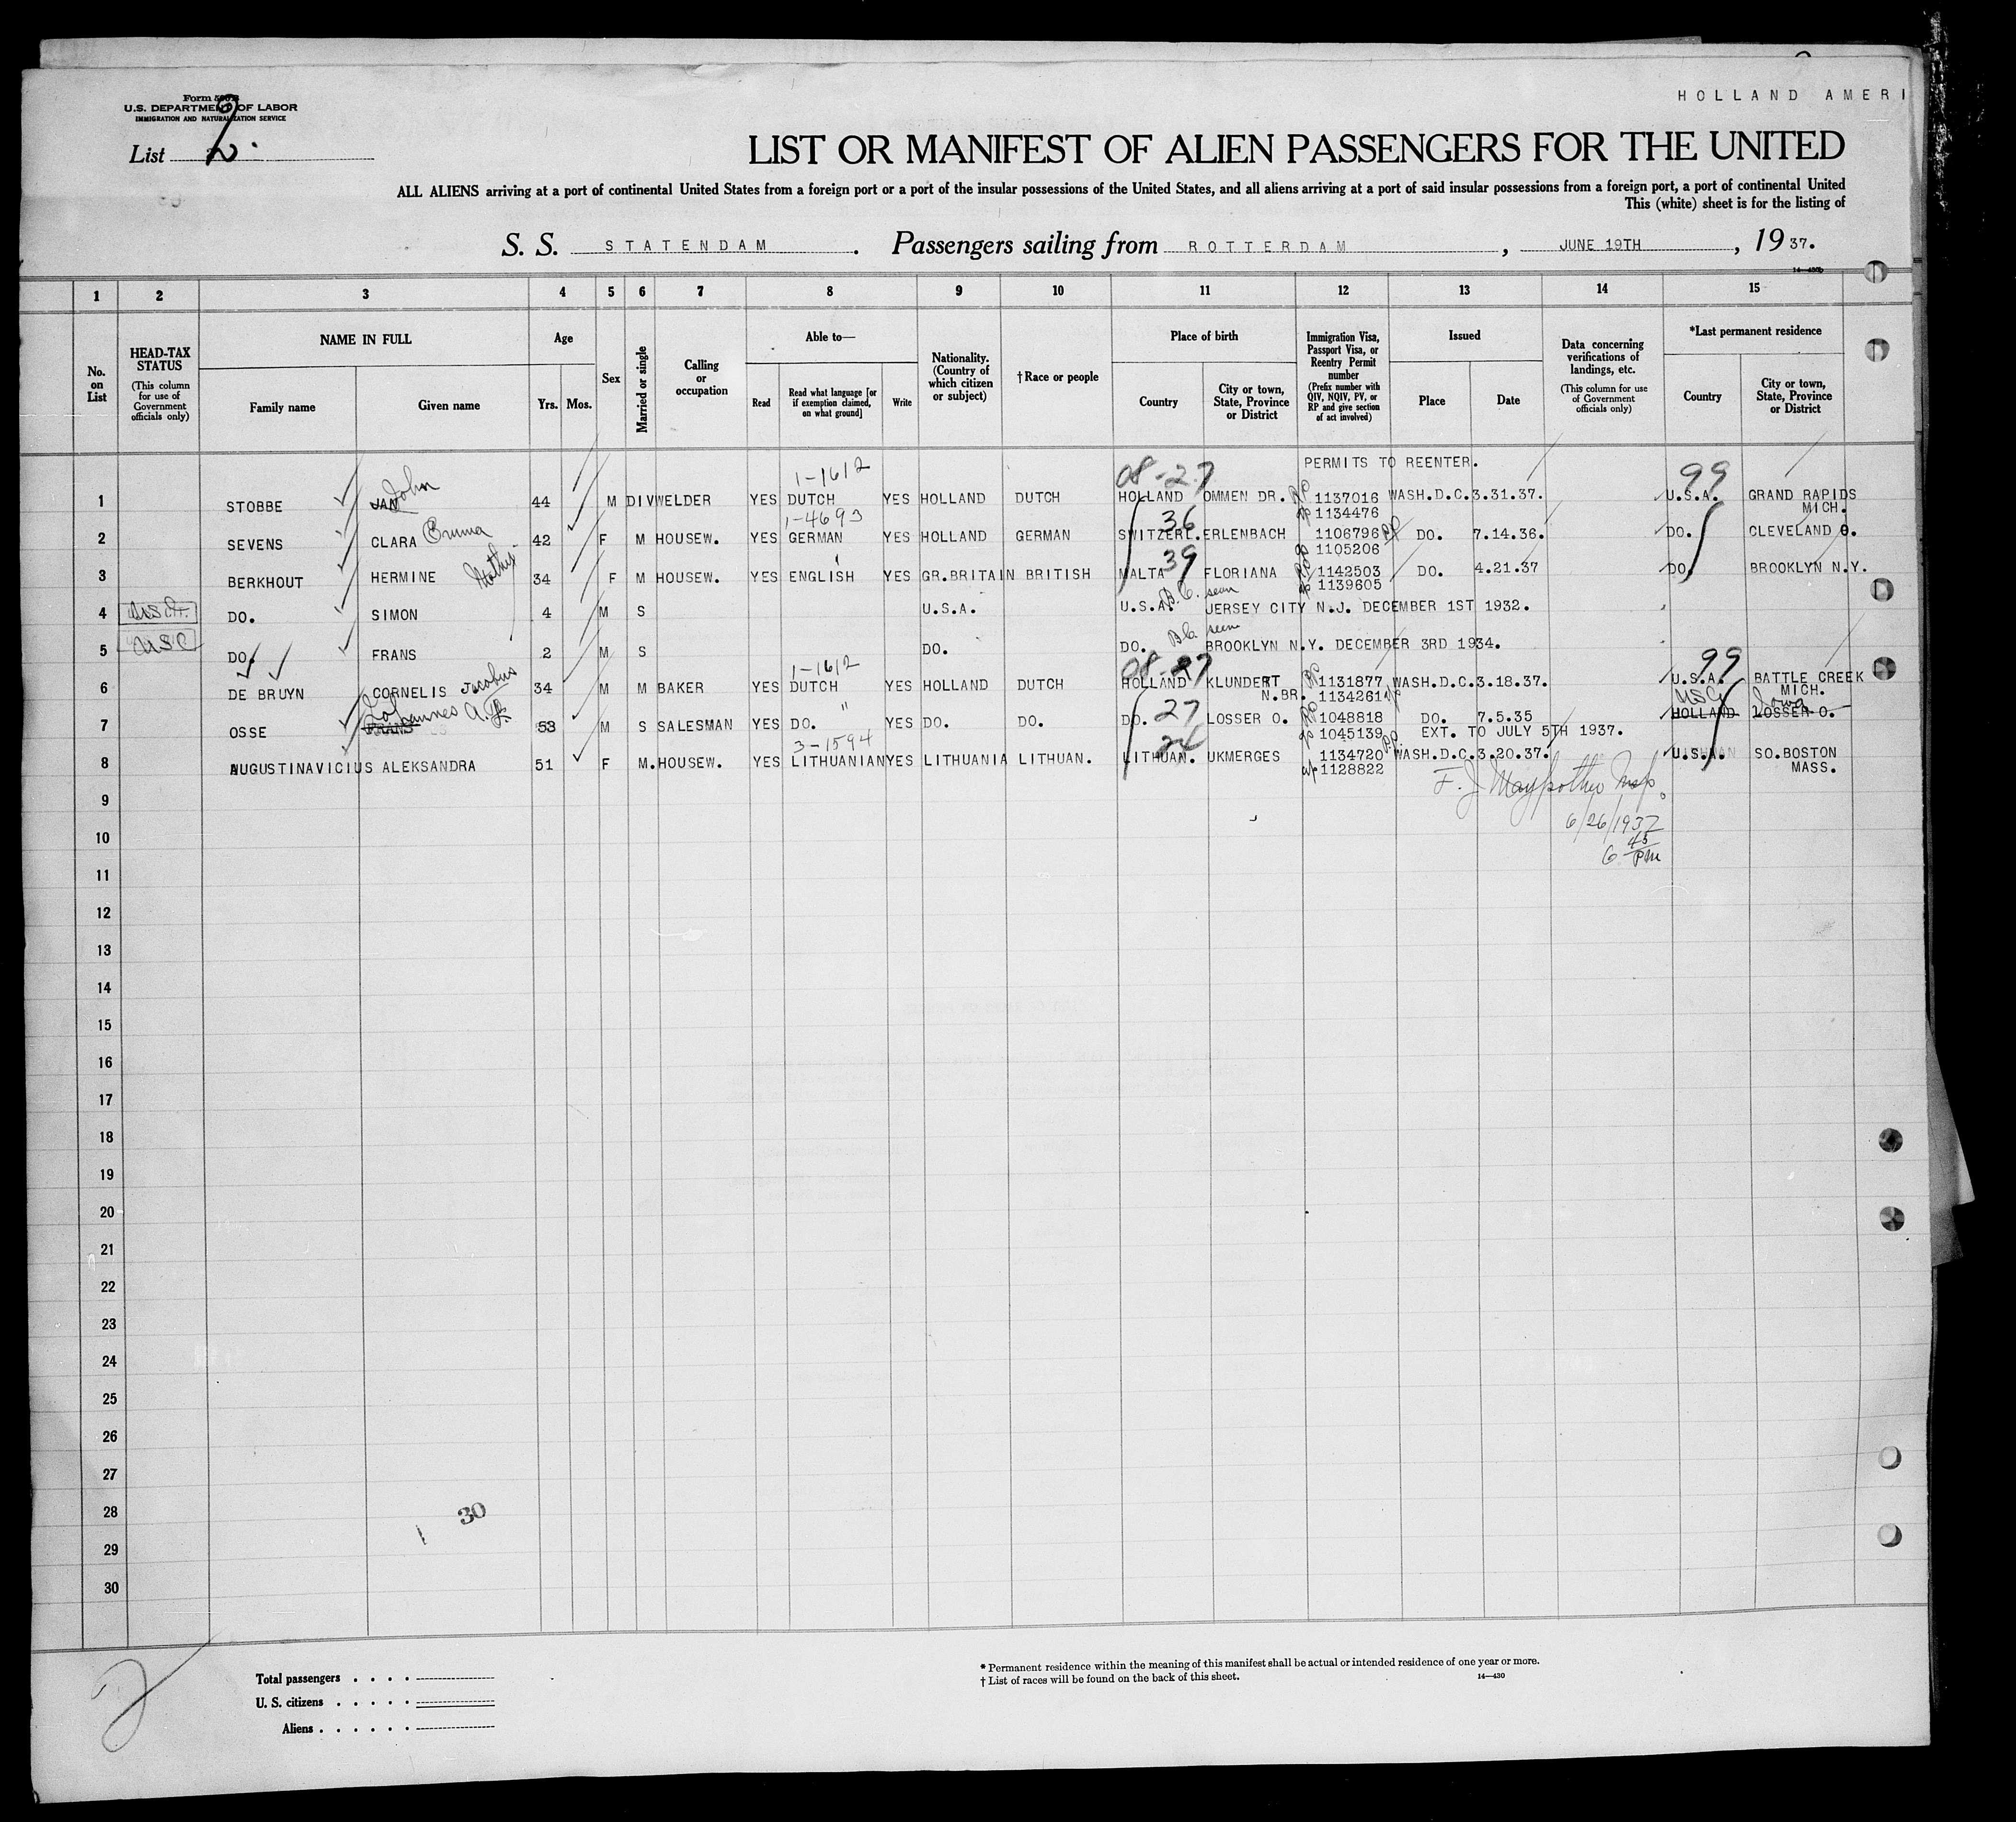 HOLLAND AMERI
Form 500 B
U.S. DEPARTMENT OF LABOR
IMMIGRATION AND NATURALIZATION SERVICE
List 2.
LIST OR MANIFEST OF ALIEN PASSENGERS FOR THE UNITED
ALL ALIENS arriving at a port of continental United States from a foreign port or a port of the insular possessions of the United States, and all aliens arriving at a port of said insular possessions from a foreign port, a port of continental United
This (white) sheet is for the listing of
S. S. STATENDAM. Passengers sailing from ROTTERDAM, JUNE 19TH, 1937.
14—430b
1 2 3 4 5 6 7 8 9 10 11 12 13 14 15
No. on List
HEAD-TAX STATUS
(This column for use of Government officials only)
NAME IN FULL
Family name
Given name
Age
Yrs. Mos.
Sex
Married or single
Calling or occupation
Able to—
Read
Read what language [or if exemption claimed, on what ground]
Write
Nationality. (Country of which citizen or subject)
†Race or people
Place of birth
Country
City or town, State, Province or District
Immigration Visa, Passport Visa, or Reentry Permit number
(Prefix number with QIV, NQIV, PV, or RP and give section of act involved)
Issued
Place
Date
Data concerning verifications of landings, etc.
(This column for use of Government officials only)
*Last permanent residence
Country
City or town, State, Province or District
PERMITS TO REENTER.
1-1612 08-27 99
1 STOBBE JAN John 44 M DIV WELDER YES DUTCH YES HOLLAND DUTCH HOLLAND OMMEN DR. RP 1137016 WASH.D.C. 3.31.37. U.S.A. GRAND RAPIDS
1134476 MICH.
1-4693 36
2 SEVENS CLARA Emma 42 F M HOUSEW. YES GERMAN YES HOLLAND GERMAN SWITZERL. ERLENBACH 1106796 DO. 7.14.36. DO. CLEVELAND O.
1105206
39
3 BERKHOUT HERMINE 34 F M HOUSEW. YES ENGLISH YES GR.BRITAIN BRITISH MALTA FLORIANA 1142503 DO. 4.21.37 DO. BROOKLYN N.Y.
1139605
B.C. seen
4 DO. SIMON 4 M S U.S.A. U.S.A. JERSEY CITY N.J. DECEMBER 1ST 1932.
USC
Bc seen
5 DO. FRANS 2 M S DO. DO. BROOKLYN N.Y. DECEMBER 3RD 1934.
1-1612 08-27 99
6 DE BRUYN CORNELIS Jacobus 34 M M BAKER YES DUTCH YES HOLLAND DUTCH HOLLAND KLUNDERT RP 1131877 WASH.D.C. 3.18.37. U.S.A. BATTLE CREEK
N.BR. 1134261 MICH.
Johannes A. 27 Iowa
7 OSSE 53 M S SALESMAN YES DO. " YES DO. DO. DO. LOSSER O. RP 1048818 DO. 7.5.35 HOLLAND LOSSER O.
1045139 EXT. TO JULY 5TH 1937.
3-1594 24
8 AUGUSTINAVICIUS ALEKSANDRA 51 F M. HOUSEW. YES LITHUANIAN YES LITHUANIA LITHUAN. LITHUAN. UKMERGES 1134720 WASH.D.C. 3.20.37. U.S.A. SO.BOSTON
1128822 MASS.
9
6/26/1937
10
6 45 PM
11
12
13
14
15
16
17
18
19
20
21
22
23
24
25
26
27
28 30
29
30
Total passengers
U. S. citizens
Aliens
2
* Permanent residence within the meaning of this manifest shall be actual or intended residence of one year or more.
† List of races will be found on the back of this sheet.
14—430